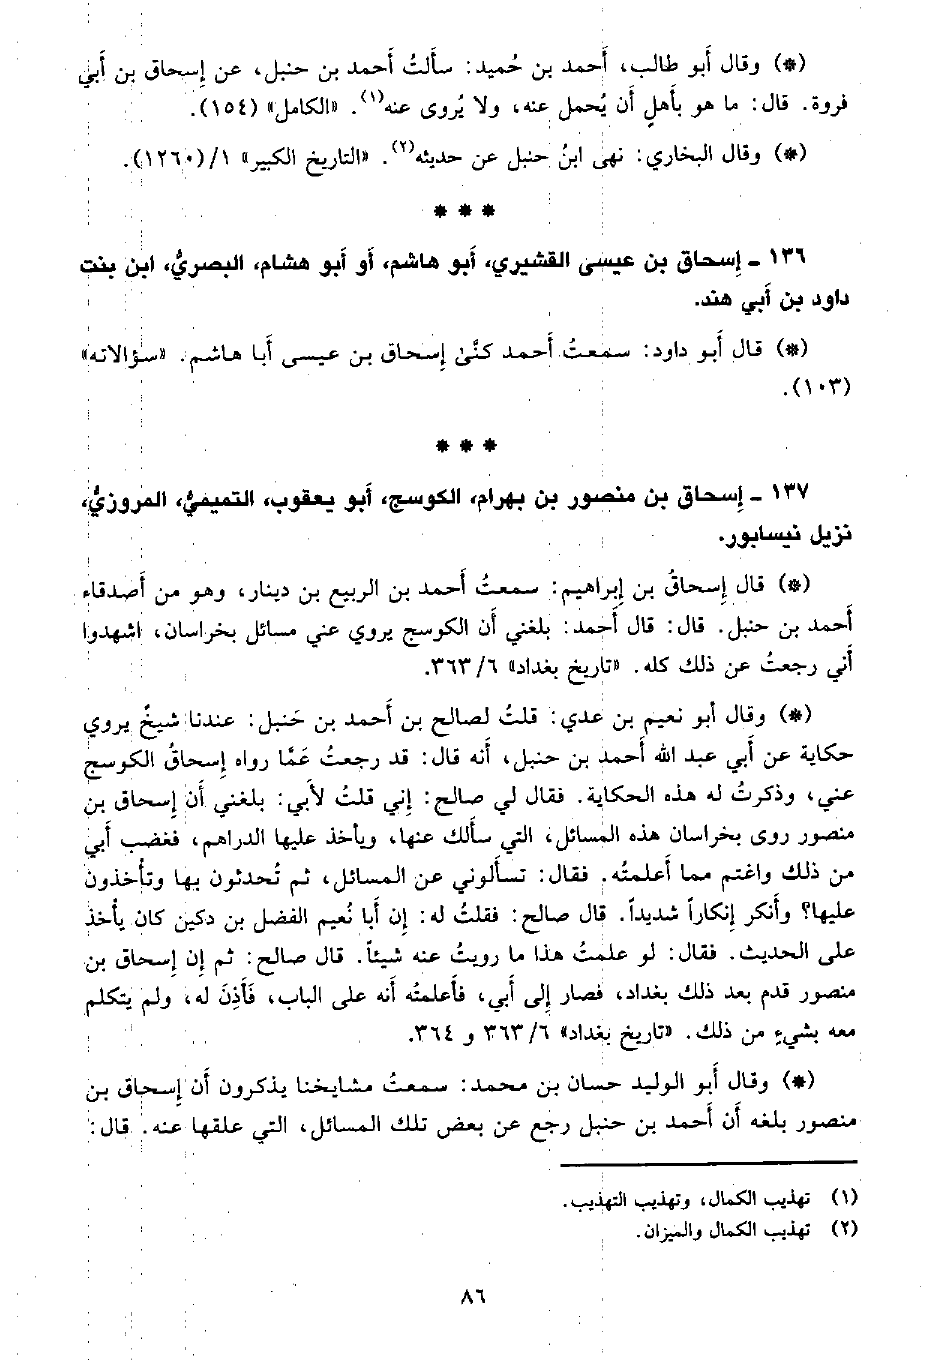 (*) وقال أَبو طالب، أَحمد بن حُميد: سأَلتُ أَحمد بن حنبل، عن إِسحاق بن أَبي
فروة. قال: ما هو بأَهلٍ أَن يُحمل عنه، ولا يُروى عنه(١). «الكامل» (١٥٤).
(*) وقال البخاري: نهى ابنُ حنبل عن حديثه(٢). «التاريخ الكبير» ١/(١٢٦٠).
* * *
١٣٦ ـ إِسحاق بن عيسى القشيري، أَبو هاشم، أَو أَبو هشام، البصريُّ، ابن بنت
داود بن أَبي هند.
(*) قال أَبو داود: سمعتُ أَحمد كنَّىٰ إِسحاق بن عيسى أَبا هاشم. «سؤالاته»
(١٠٣).
* * *
١٣٧ ـ إِسحاق بن منصور بن بهرام، الكوسج، أَبو يعقوب، التميميُّ، المروزيُّ،
نزيل نيسابور.
(*) قال إِسحاقُ بن إِبراهيم: سمعتُ أَحمد بن الربيع بن دينار، وهو من أَصدقاء
أَحمد بن حنبل. قال: قال أَحمد: بلغني أَن الكوسج يروي عني مسائل بخراسان، اشهدوا
أَني رجعتُ عن ذلك كله. «تاريخ بغداد» ٦/٣٦٣.
(*) وقال أبو نعيم بن عدي: قلتُ لصالح بن أَحمد بن حَنبل: عندنا شيخٌ يروي
حكاية عن أَبي عبد الله أَحمد بن حنبل، أَنه قال: قد رجعتُ عَمَّا رواه إِسحاقُ الكوسج
عني، وذكرتُ له هذه الحكاية. فقال لي صالح: إِني قلتُ لأَبي: بلغني أَن إِسحاق بن
منصور روى بخراسان هذه المسائل، التي سأَلك عنها، ويأخذ عليها الدراهم، فغضب أَبي
من ذلك واغتم مما أَعلمتُه. فقال: تسأَلوني عن المسائل، ثم تُحدثون بها وتأخذون
عليها؟ وأَنكر إِنكاراً شديداً. قال صالح: فقلتُ له: إِن أَبا نُعيم الفضل بن دكين كان يأخذ
على الحديث. فقال: لو علمتُ هذا ما رويتُ عنه شيئاً. قال صالح: ثم إِن إِسحاق بن
منصور قدم بعد ذلك بغداد، فصار إِلى أَبي، فأَعلمتُه أَنه على الباب، فَأَذِنَ له، ولم يتكلم
معه بشيءٍ من ذلك. «تاريخ بغداد» ٦/٣٦٣ و ٣٦٤.
(*) وقال أَبو الوليد حسان بن محمد: سمعتُ مشايخنا يذكرون أَن إِسحاق بن
منصور بلغه أَن أَحمد بن حنبل رجع عن بعض تلك المسائل، التي علقها عنه. قال:
(١) تهذيب الكمال، وتهذيب التهذيب.
(٢) تهذيب الكمال والميزان.
٨٦